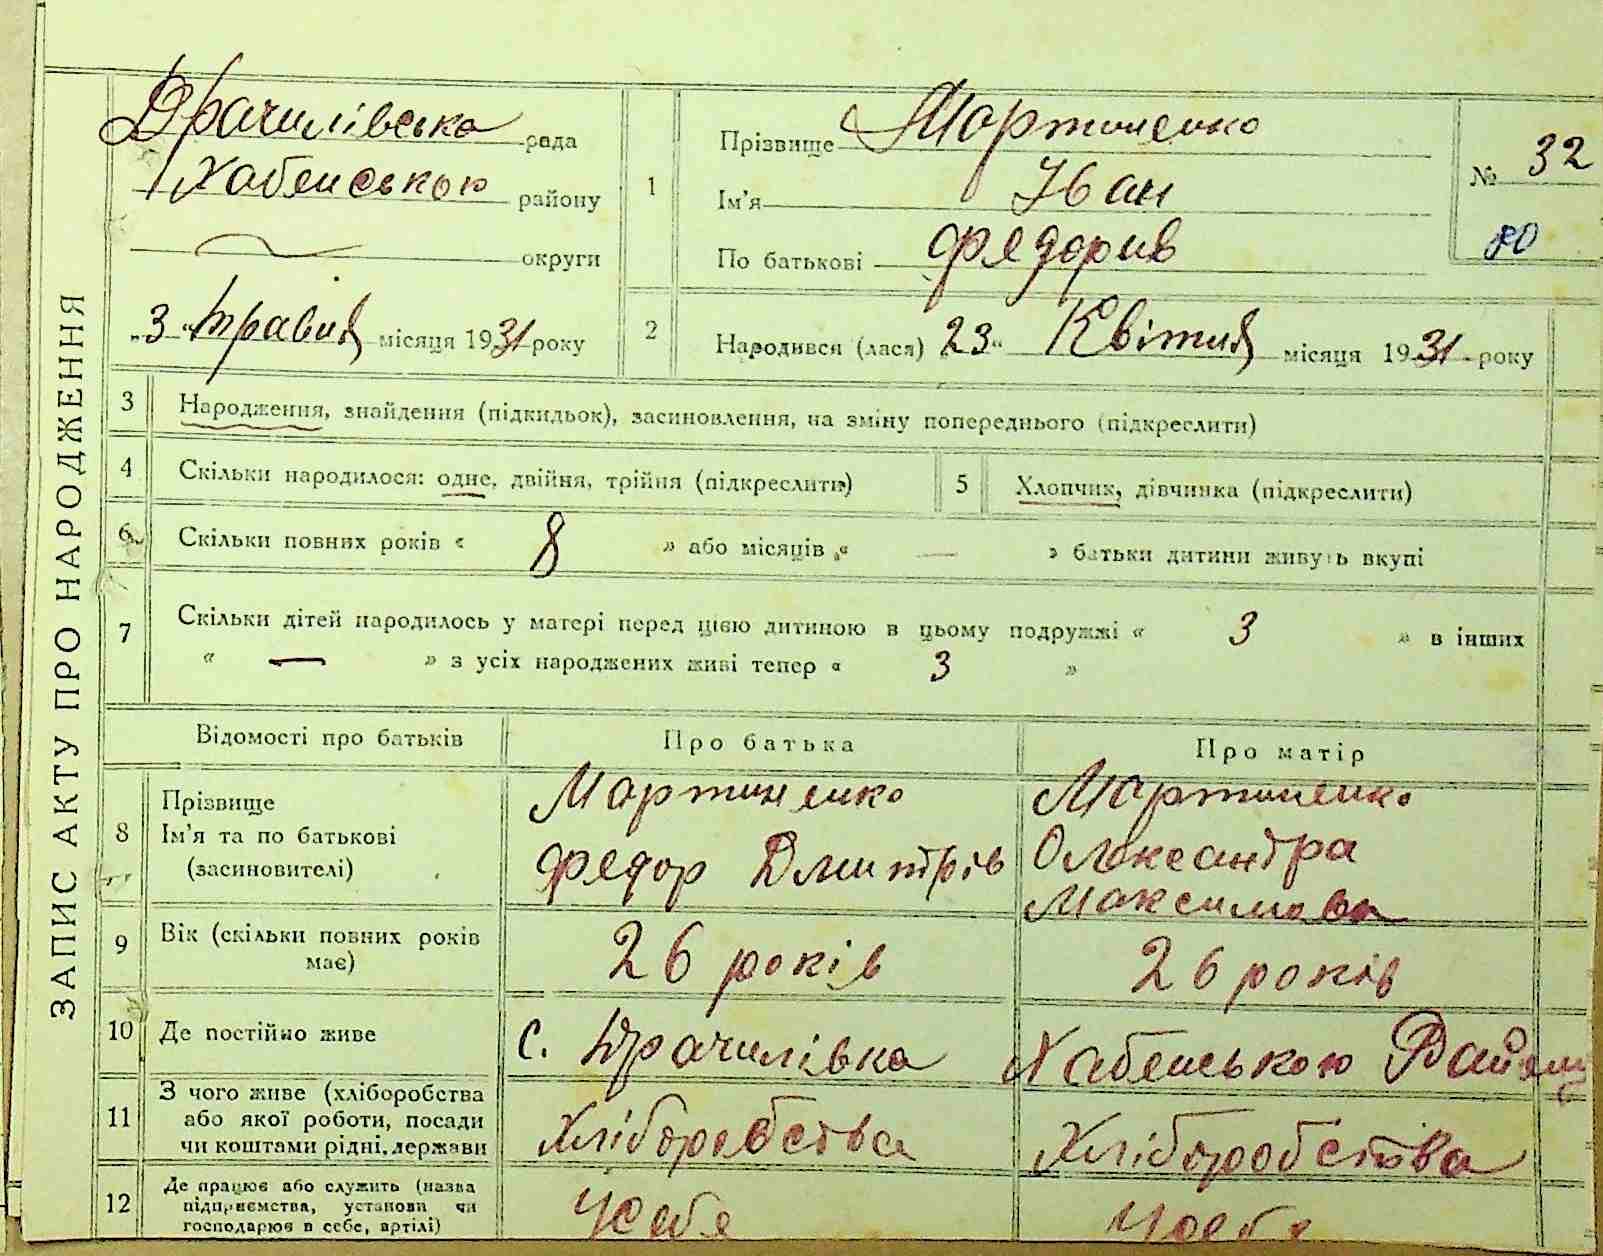 ЗАПИС АКТУ ПРО НАРОДЖЕННЯ
Драчилівська рада
Хабенського району
округи
„3“ травня місяця 1931 року
1
Прізвище Мартиненко
Ім'я Іван
По батькові Федорив
№ 32
80
2
Народився (лася) 23“ Квітня місяця 1931 року
3 Народження, знайдення (підкидьок), засиновлення, на зміну попереднього (підкреслити)
4 Скільки народилося: одне, двійня, трійня (підкреслити)
5 Хлопчик, дівчинка (підкреслити)
6 Скільки повних років « 8 » або місяців « — » батьки дитини живуть вкупі
7 Скільки дітей народилось у матері перед цією дитиною в цьому подружжі « 3 » в інших
« — » з усіх народжених живі тепер « 3 »
Відомості про батьків Про батька Про матір
8 Прізвище
Ім'я та по батькові
(засиновителі)
Мартиненко
Федор Дмитрів
Мартиненко
Олександра
Максимова
9 Вік (скільки повних років
має)
26 років
26 років
10 Де постійно живе
с. Драчилівка
Хабенського Району
11 З чого живе (хліборобства
або якої роботи, посади
чи коштами рідні, держави
Хліборобства
Хліборобства
12 Де працює або служить (назва
підприємства, установи чи
господарює в себе, артілі)
У себе
У себе